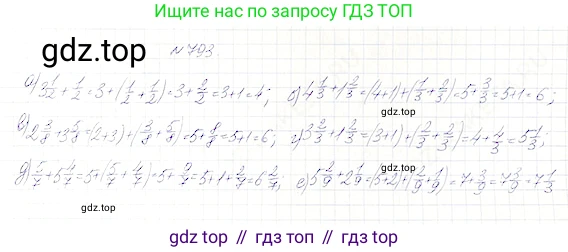 Ищите нас по запросу ГДЗ ТОП
gdz.top
№793.
а) 3 1/2 + 1/2 = 3 + (1/2 + 1/2) = 3 + 2/2 = 3 + 1 = 4; б) 4 1/3 + 1 2/3 = (4+1) + (1/3 + 2/3) = 5 + 3/3 = 5 + 1 = 6;
gdz.top
в) 2 3/8 + 3 5/8 = (2+3) + (3/8 + 5/8) = 5 + 8/8 = 5 + 1 = 6; г) 3 2/3 + 1 2/3 = (3+1) + (2/3 + 2/3) = 4 + 4/3 = 5 1/3;
д) 5/7 + 5 4/7 = 5 + (5/7 + 4/7) = 5 + 9/7 = 5 + 1 + 2/7 = 6 2/7; е) 5 2/9 + 2 1/9 = (5+2) + (2/9 + 1/9) = 7 + 3/9 = 7 3/9 = 7 1/3
gdz.top
gdz.top // гдз топ // гдз.топ